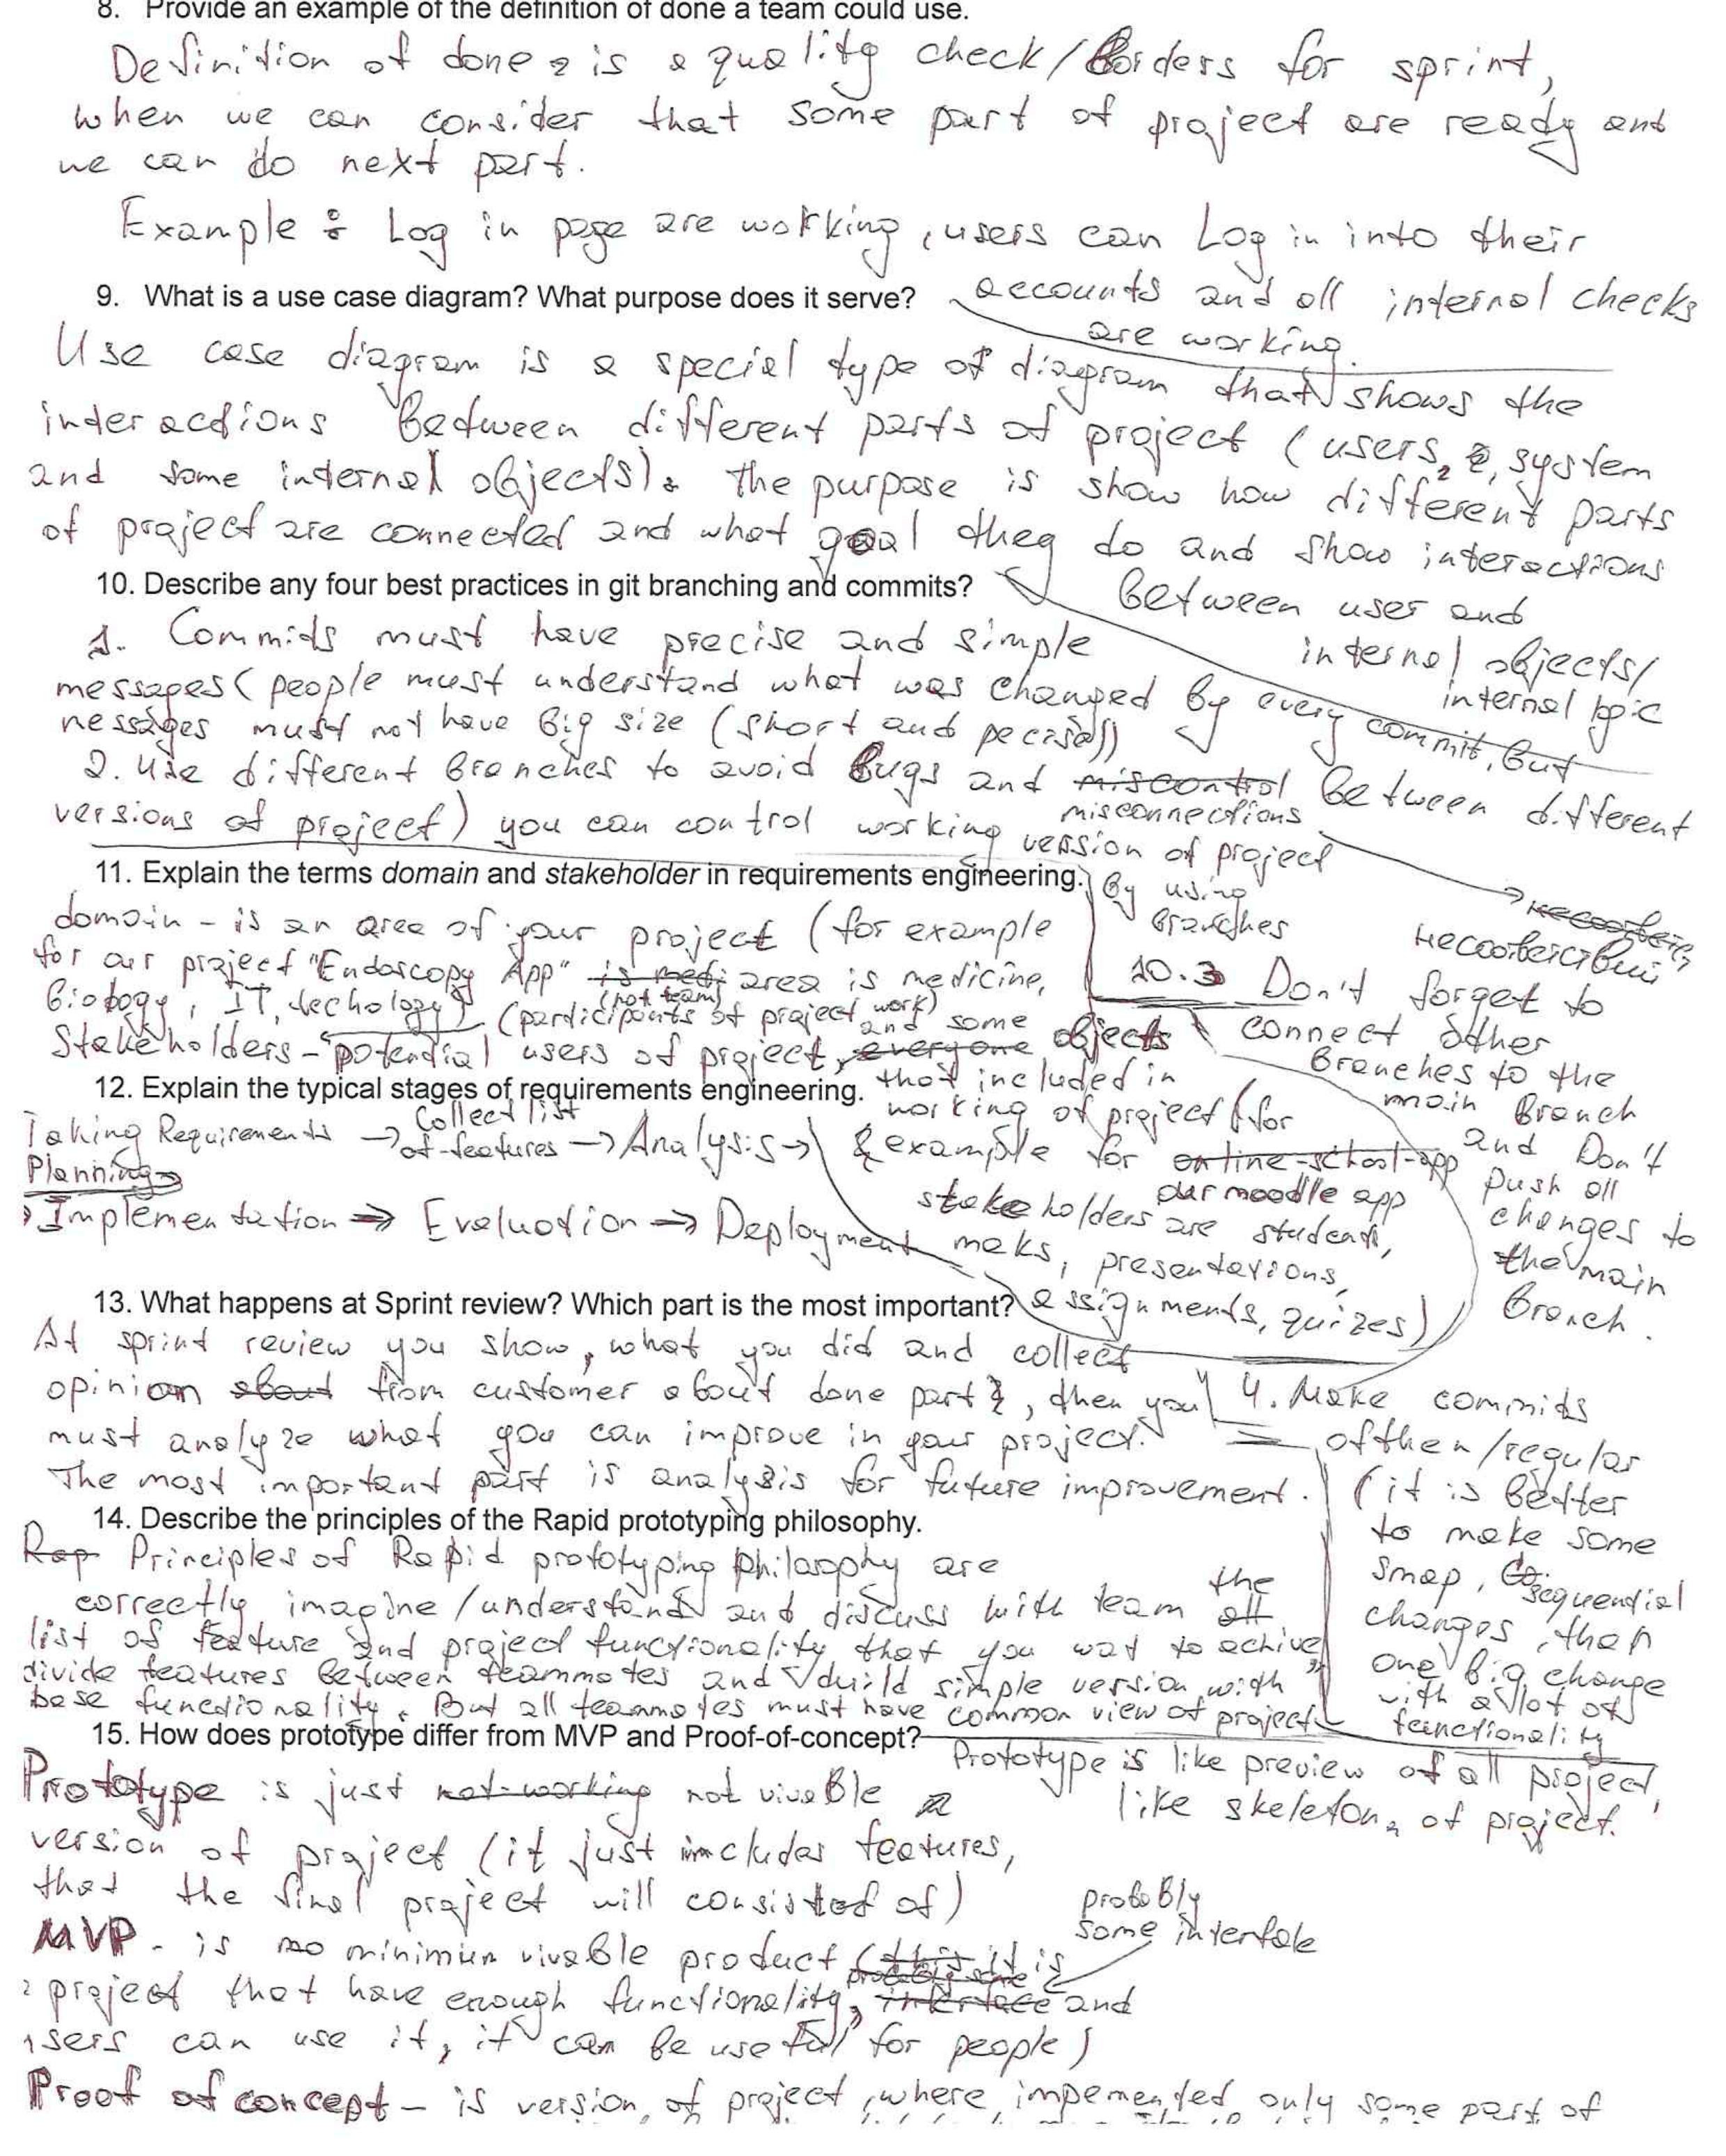 8. Provide an example of the definition of done a team could use.
Definition of done is a quality check/Borders for sprint,
when we can consider that some part of project are ready and
we can do next part.
Example: Log in page are working, users can Log in into their
accounts and all internal checks
are working.
9. What is a use case diagram? What purpose does it serve?
Use case diagram is a special type of diagram that shows the
interactions between different parts of project (users, system
and some internal objects). The purpose is show how different parts
of project are connected and what goal they do and show interactions
between user and
internal objects/
internal logic
10. Describe any four best practices in git branching and commits?
1. Commids must have precise and simple
messages (people must understand what was changed by every commit, but
messages must not have big size (short and pecise))
2. Use different branches to avoid bugs and miscontrol between different
misconnections
versions of project) you can control working version of project
by using
branches
несоответствий
10.3 Don't forget to
connect other
branches to the
main branch
and Don't
push all
changes to
the main
branch.
4. Make commids
ofthen/regular
(it is better
to make some
smap, sequential
changes, then
one big change
with a lot of
functionality
11. Explain the terms domain and stakeholder in requirements engineering.
domain - is an area of your project (for example
for our project "Endoscopy App" is medi area is medicine,
biology, IT, techology)
(participants of project work)
(not team)
and some
Stakeholders - potential users of project, everyone objects
that included in
working of project (for
example for online-school-app
our moodle app
stakeholders are students,
meks, presentations,
assignments, quizes)
12. Explain the typical stages of requirements engineering.
Taking Requirements → Collect list of features → Analysis →
Planning →
Implementation → Evaluation → Deployment
13. What happens at Sprint review? Which part is the most important?
At sprint review you show, what you did and collect
opinion about from customer about done part, then you
must analyze what you can improve in your project.
The most important part is analysis for future improvement.
14. Describe the principles of the Rapid prototyping philosophy.
Rap Principles of Rapid prototyping philosophy are
correctly imagine/understand and discuss with team all the
list of feature and project functionality that you wat to achive
divide features between teammates and build simple version with
base functionality. But all teammates must have common view of project
15. How does prototype differ from MVP and Proof-of-concept?
Prototype is like preview of all project,
like skeleton, of project.
Prototype is just not working not vivable
version of project (it just includes features,
that the final project will consisted of)
MVP - is minimum vivable product (this it is
probobly
some interfale
project that have enough functionality, interface and
users can use it, it can be useful for people)
Proof of concept - is version of project, where impemented only some part of